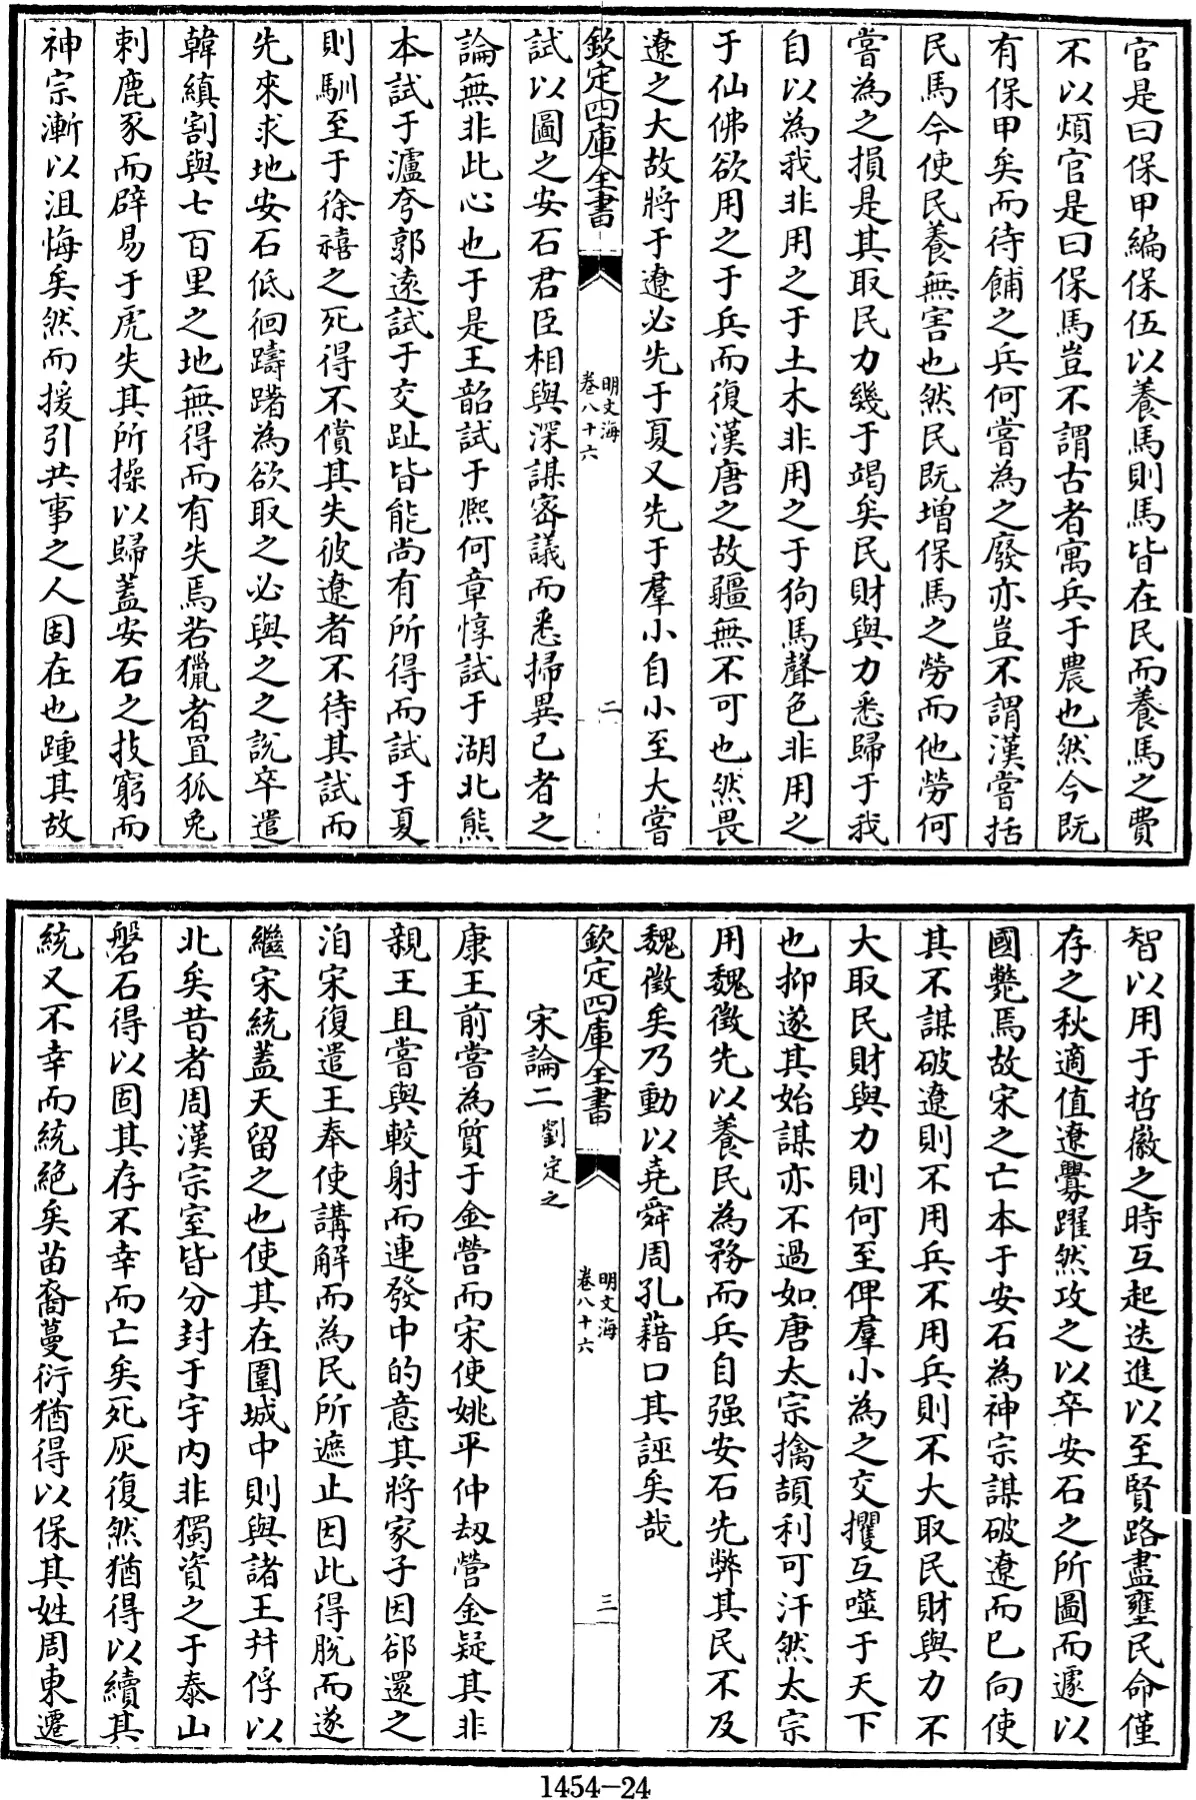 官是曰保甲編保伍以養馬則馬皆在民而養馬之費
不以煩官是曰保馬豈不謂古者寓兵于農也然今既
有保甲矣而待餔之兵何嘗為之廢亦豈不謂漢嘗括
民馬今使民養無害也然民既增保馬之勞而他勞何
嘗為之損是其取民力幾于竭矣民財與力悉歸于我
自以為我非用之于土木非用之于狗馬聲色非用之
于仙佛欲用之于兵而復漢唐之故疆無不可也然畏
遼之大故將于遼必先于夏又先于羣小自小至大嘗
欽定四庫全書
明文海
卷八十六
二
試以圖之安石君臣相與深謀密議而悉掃異已者之
論無非此心也于是王韶試于熙何章惇試于湖北熊
本試于瀘夸郭逵試于交趾皆能尚有所得而試于夏
則馴至于徐禧之死得不償其失彼遼者不待其試而
先來求地安石低徊躊躇為欲取之必與之之說卒遣
韓縝割與七百里之地無得而有失焉若獵者罝狐兎
刺鹿豕而辟易于虎失其所操以歸蓋安石之技窮而
神宗漸以沮悔矣然而援引共事之人固在也踵其故
智以用于哲徽之時互起迭進以至賢路盡壅民命僅
存之秋適值遼釁躍然攻之以卒安石之所圖而遽以
國斃焉故宋之亡本于安石為神宗謀破遼而已向使
其不謀破遼則不用兵不用兵則不大取民財與力不
大取民財與力則何至俾羣小為之交攫互噬于天下
也抑遂其始謀亦不過如唐太宗擒頡利可汗然太宗
用魏徵先以養民為務而兵自强安石先弊其民不及
魏徵矣乃動以堯舜周孔藉口其誣矣哉
欽定四庫全書
明文海
卷八十六
三
宋論二 劉定之
康王前嘗為質于金營而宋使姚平仲刼營金疑其非
親王且嘗與較射而連發中的意其將家子因郤還之
洎宋復遣王奉使講解而為民所遮止因此得脫而遂
繼宋統蓋天留之也使其在圍城中則與諸王幷俘以
北矣昔者周漢宗室皆分封于宇内非獨資之于泰山
磐石得以固其存不幸而亡矣死灰復然猶得以續其
統又不幸而統絶矣苗裔蔓衍猶得以保其姓周東遷
1454—24